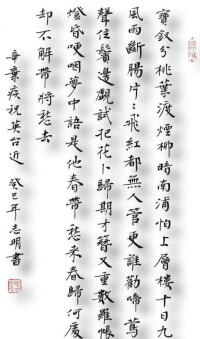 寶釵分桃葉渡煙柳暗南浦怕上層樓十日九
風雨斷腸片〻飛紅都無人管更誰勸啼鶯
聲住鬢邊覷試把花卜歸期才簪又重數羅帳
燈昏哽咽夢中語是他春帶愁來春歸何處
却不解帶將愁去
辛棄疾祝英台近 癸巳年志明書